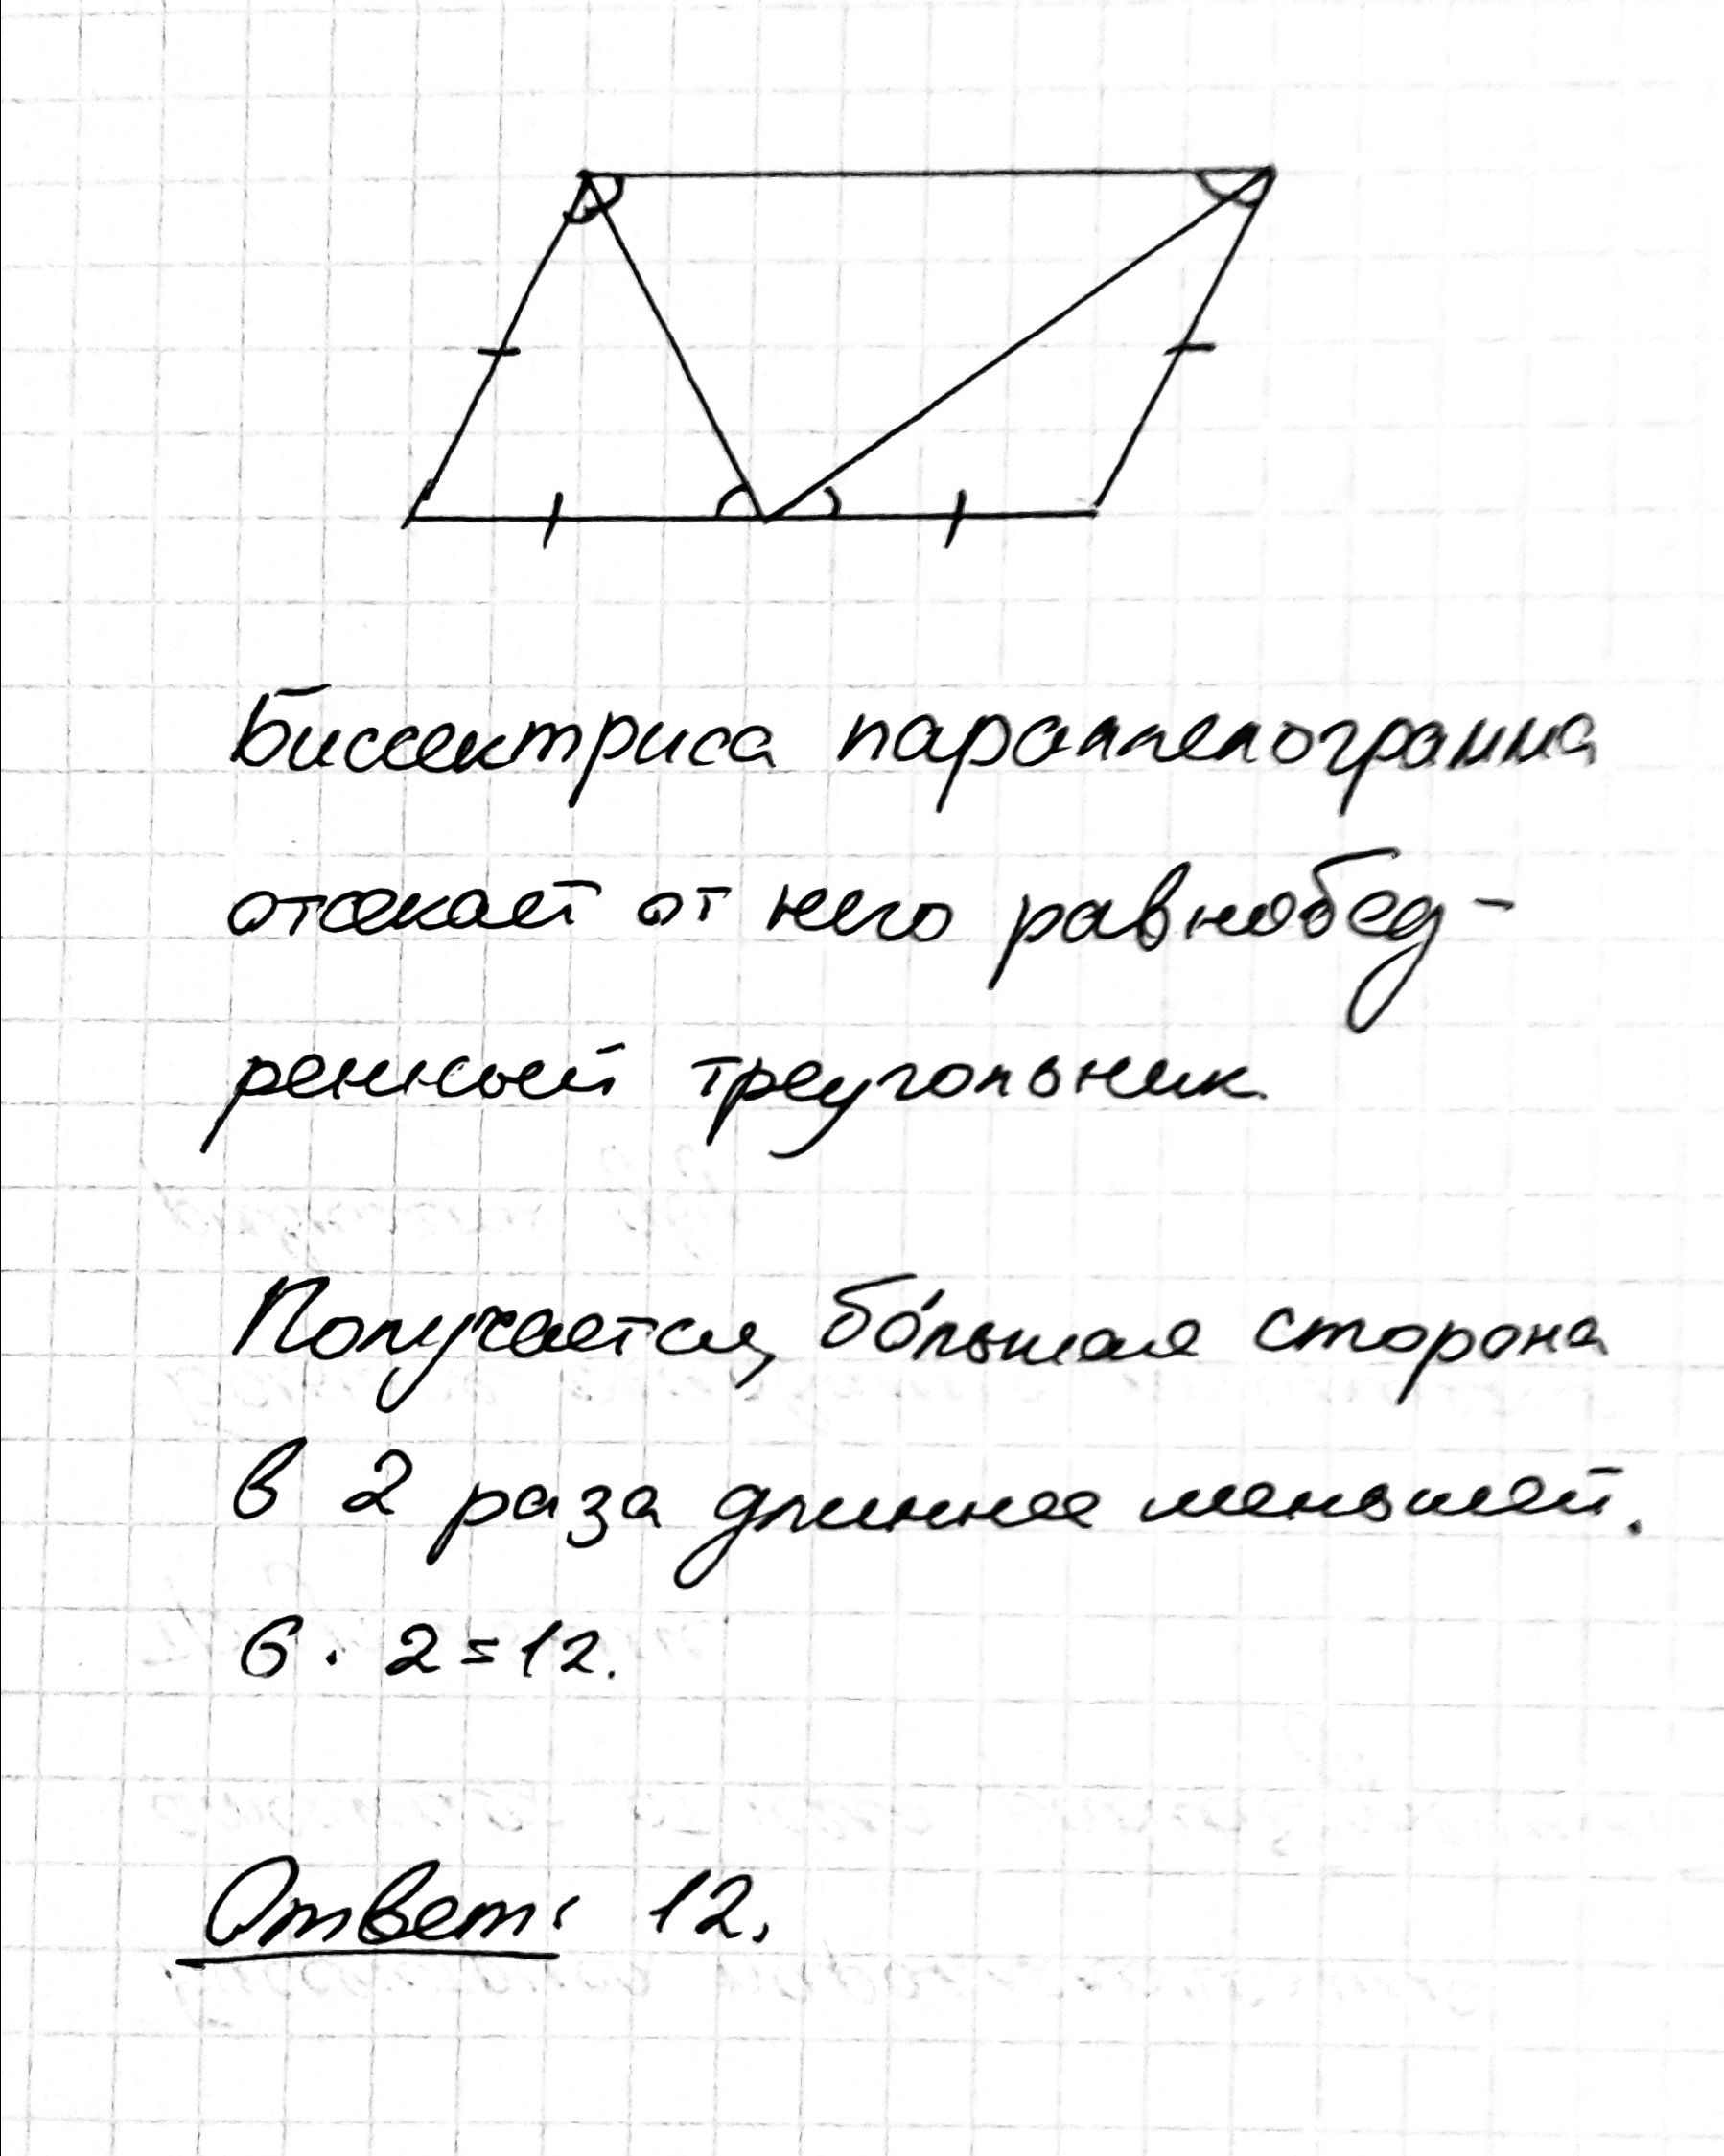 Биссектриса параллелограмма
отсекает от него равнобед-
ренный треугольник.
Получается, бо́льшая сторона
в 2 раза длиннее меньшей.
6 · 2 = 12.
Ответ: 12.